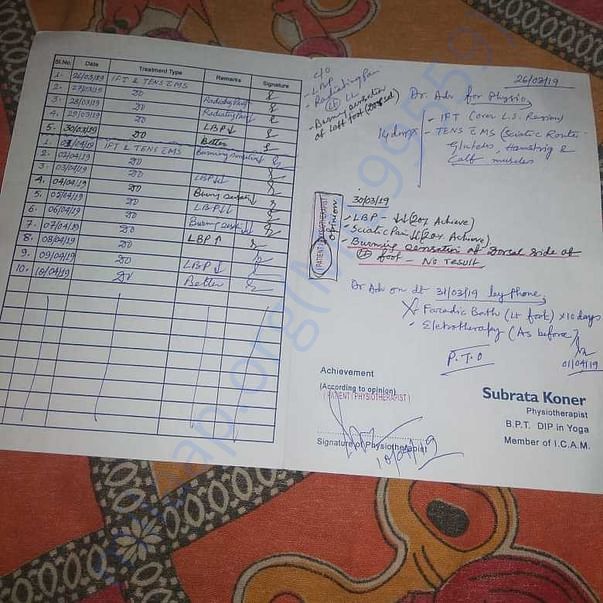 Sl.No. Date Treatment Type Remarks Signature
1. 26/03/19 IFT & TENS EMS
2. 27/03/19 DO
3. 28/03/19 DO Radiating Pain
4. 29/03/19 DO Radiating Pain
5. 30/03/19 DO LBP↓
1. 01/04/19 IFT & TENS EMS Better
2. 02/04/19 DO Burning sensation
3. 03/04/19 DO
4. 04/04/19 DO LBP↓↓
5. 05/04/19 DO Burn sensation
6. 06/04/19 DO LBP↓↓
7. 07/04/19 DO Burning
8. 08/04/19 DO LBP↑
9. 09/04/19 DO LBP↓
10. 10/04/19 DO Better
C/O
- LBP
- Radiating Pain
(Lt) LL
- Burning sensation
of Left foot (Dorsal)
26/03/19
Dr. Adv for Physio
- IFT (over L.S. Region)
14 days - TENS EMS (Sciatic Route-
Gluteus, Hamstring &
Calf muscles
30/03/19
(PATIENT/PHYSIOTHERAPIST)
opinion
- LBP - ↓↓ (20% Achieve)
- Sciatic Pain ↓↓ (20% Achieve)
- Burning sensation of Dorsal side of
Lt foot - No result
Dr Adv on dt 31/03/19 by Phone,
Faradic Bath (Lt foot) x 10 days
- Eletrotherapy (As before)
P.T.O
01/04/19
Achievement
(According to opinion)
(PATIENT/PHYSIOTHERAPIST)
Signature of Physiotherapist
10/04/19
Subrata Koner
Physiotherapist
B.P.T. DIP in Yoga
Member of I.C.A.M.